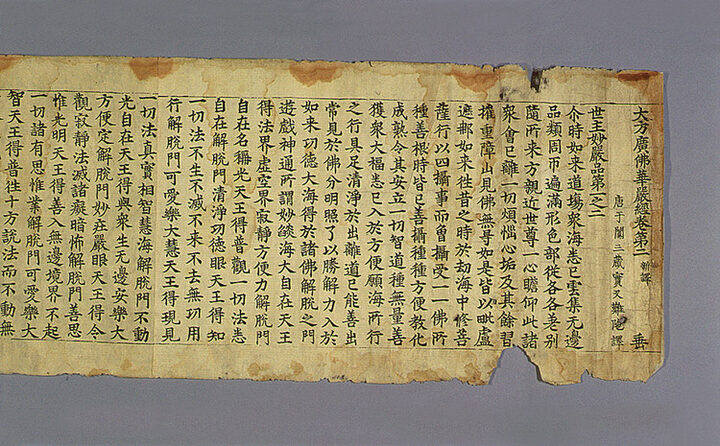 大方廣佛華嚴經卷第二 新譯
唐于闐三藏實叉難陁譯 垂
世主妙嚴品第一之二
尒時如來道場衆海悉已雲集无邊
品類周帀遍滿形色部從各各差別
隨所來方親近世尊一心瞻仰此諸
衆會已離一切煩惱心垢及其餘習
摧重障山見佛無㝵如是皆以毗盧
遮那如來往昔之時於劫海中修菩
薩行以四攝事而曾攝受一一佛所
種善根時皆已善攝種種方便教化
成熟令其安立一切智道種無量善
獲衆大福悉已入於方便願海所行
之行具足清淨於出離道已能善出
常見於佛分明照了以勝解力入於
如來功德大海得於諸佛解脫之門
遊戲神通所謂妙燄海大自在天王
得法界虛空界寂靜方便力解脫門
自在名稱光天王得普觀一切法悉
自在解脫門清淨功德眼天王得知
一切法不生不滅不來不去無功用
行解脫門可愛樂大慧天王得現見
一切法真實相智慧海解脫門不動
光自在天王得與衆生无邊安樂大
方便定解脫門妙莊嚴眼天王得令
觀寂靜法滅諸癡暗怖解脫門善思
惟光明天王得善入無邊境界不起
一切諸有思惟業解脫門可愛樂大
智天王得普往十方說法而不動無